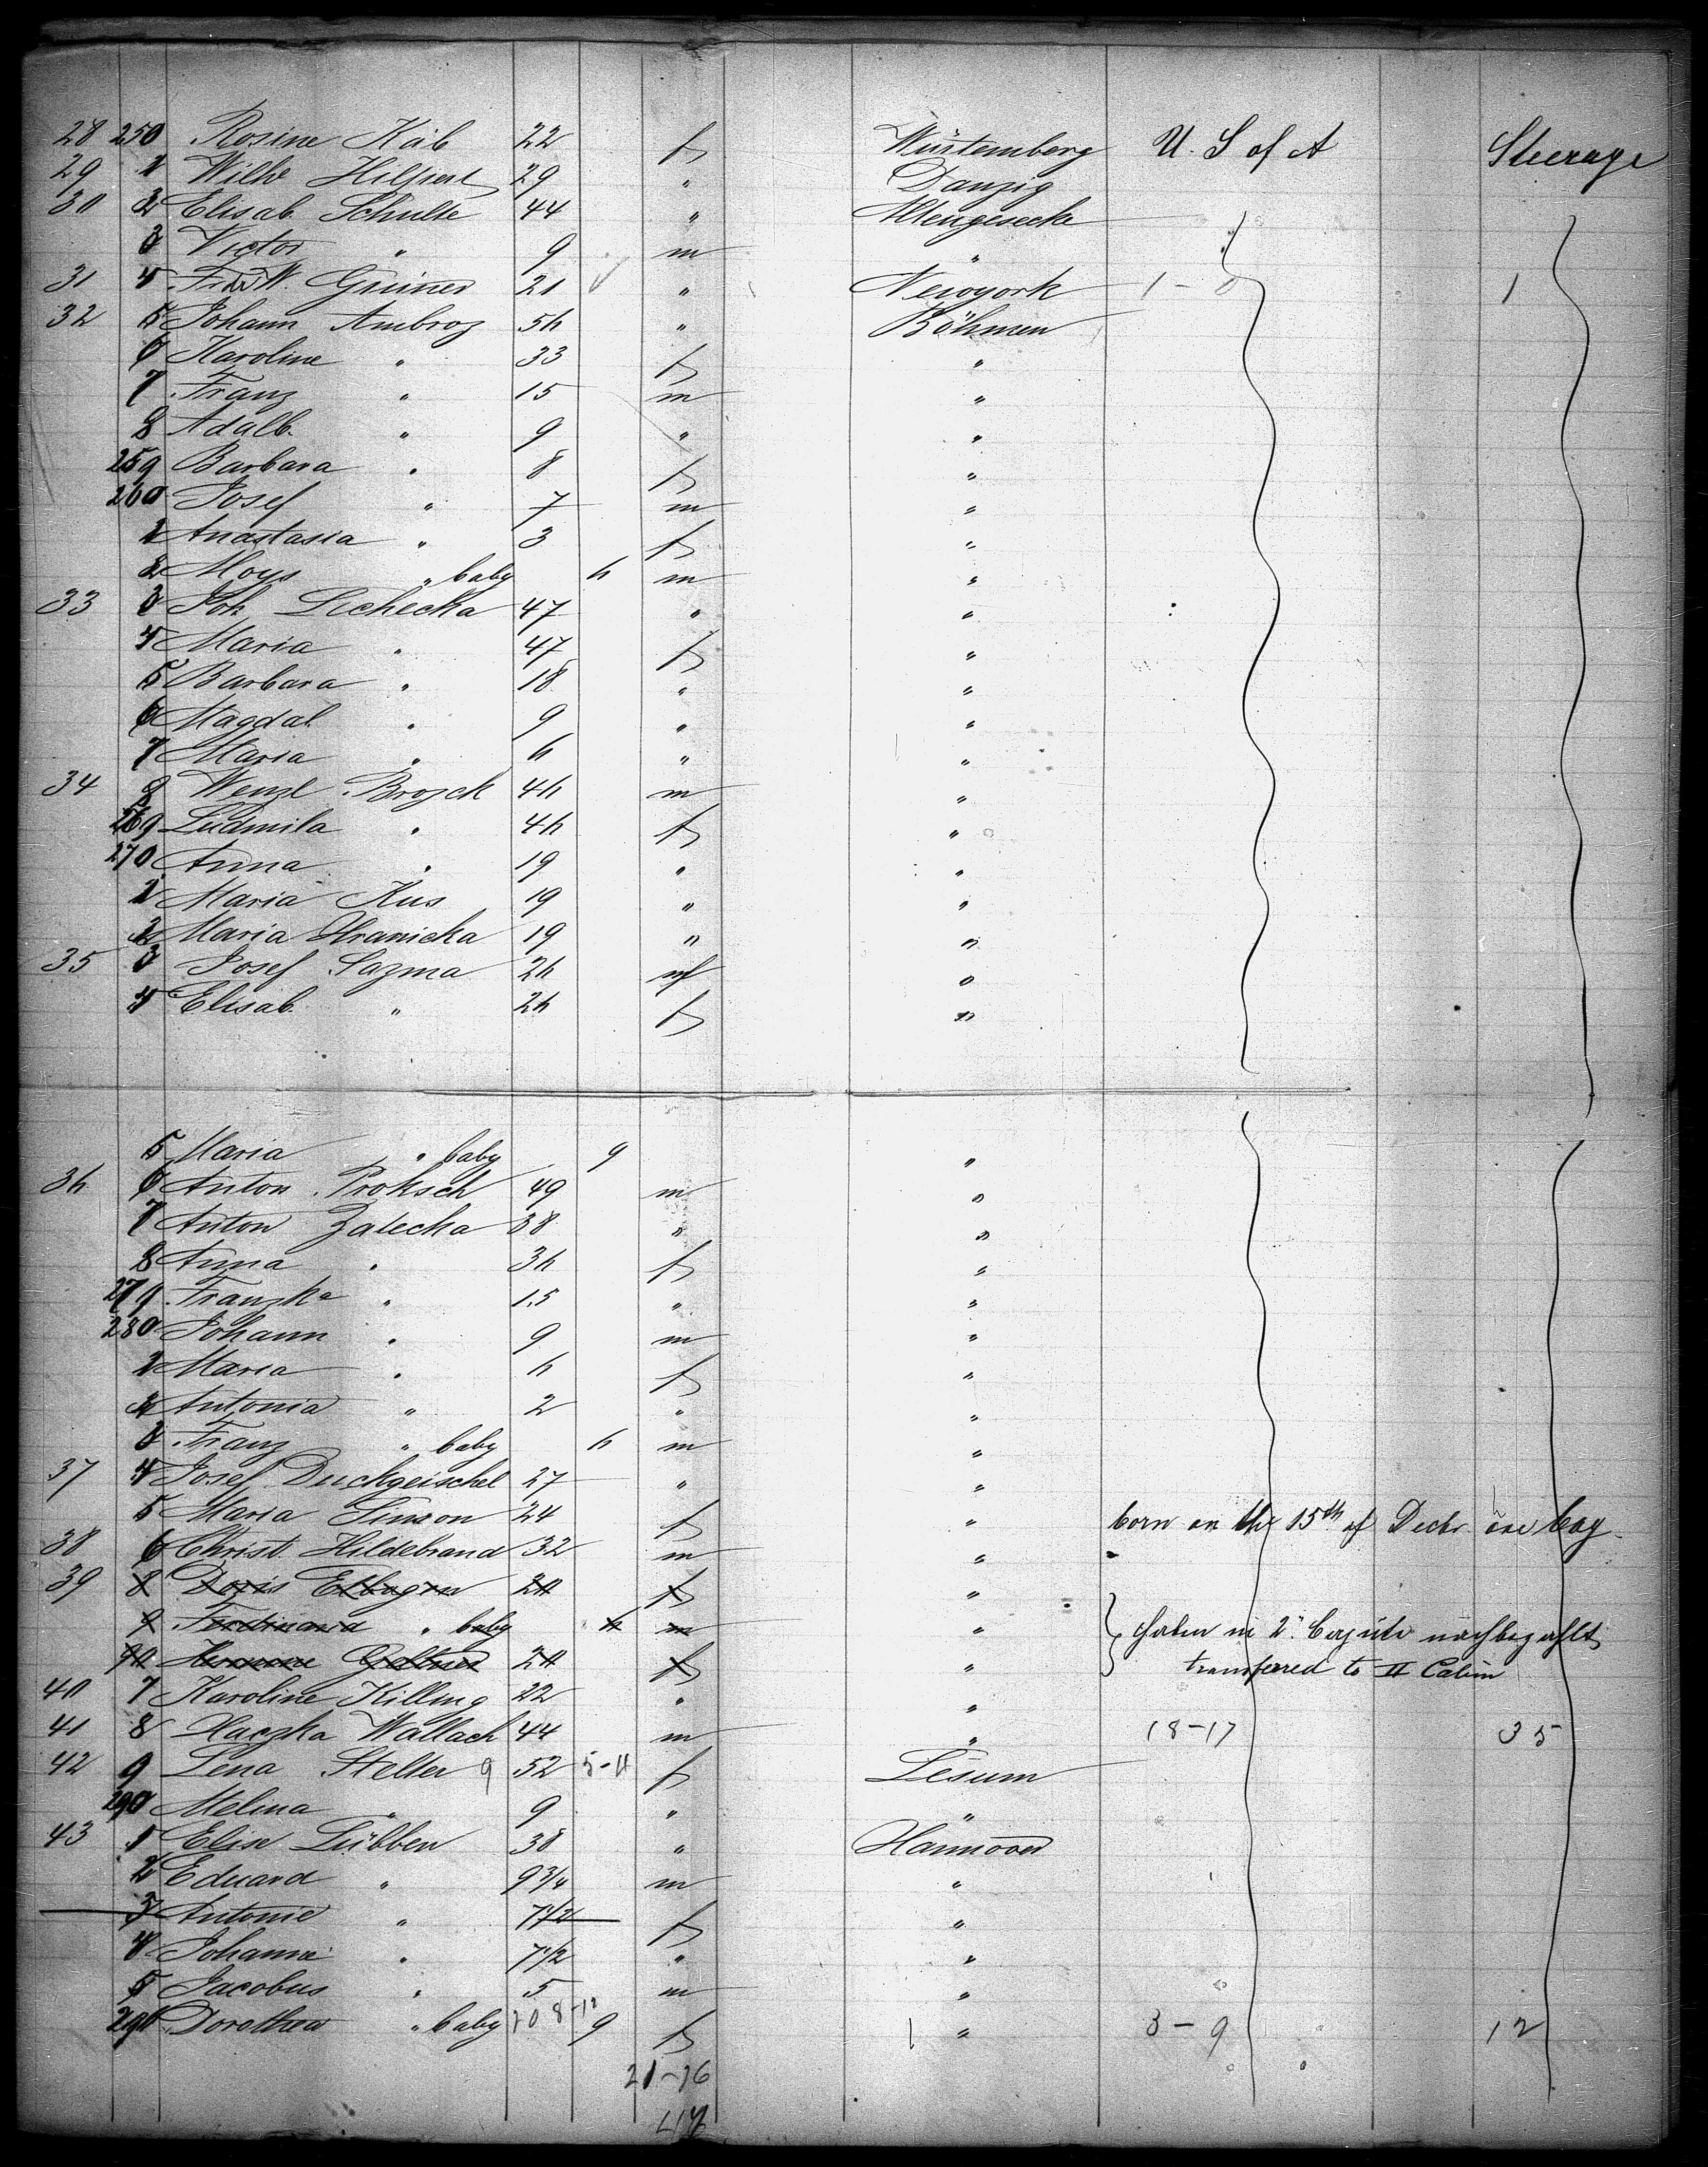 28 250 Rosine Käb 22 f Würtemberg U. S of A Steerage
29 1 Wilhe Hilpert 29 " Danzig
30 2 Elisab. Schulte 44 " Altengesecke
3 Victor " 9 m "
31 4 Frdr W. Greiner 21 " Newyork 1 - 0 1
32 5 Johann Ambroz 56 " Böhmen
6 Karoline " 33 f "
7 Franz " 15 m "
8 Adalb. " 9 " "
259 Barbara " 8 f "
260 Josef " 7 m "
1 Anastasia " 3 f "
2 Aloys " baby 6 m "
33 3 Joh. Lechecka 47 " "
4 Maria " 47 f "
5 Barbara " 18 " "
6 Magdal. " 9 " "
7 Maria " 6 " "
34 8 Wenzl Brozek 46 m "
269 Ludmila " 46 f "
270 Anna " 19 " "
1 Maria Kus 19 " "
2 Maria Hranicka 19 " "
35 3 Josef Sazma 26 m "
4 Elisab. " 26 f "
5 Maria " baby 9 "
36 6 Anton Proksch 49 m "
7 Anton Zalecka 38 " "
8 Anna " 36 f "
279 Franzka " 15 " "
280 Johann " 9 m "
1 Maria " 6 f "
2 Antonia " 2 " "
3 Franz " baby 6 m "
37 4 Josef Duckgeischel 27 " "
5 Maria Simon 24 f " born on the 15th of Decbr. one boy.
38 6 Christ. Hildebrand 32 m "
39 8 Doris Elbogen 20 f "
9 Ferdinand " baby 6 m " haben in 2. Cajüte nachbezahlt
90 Hermine 20 f " transferred to II Cabin
40 7 Karoline Killing 22 " "
41 8 Haczka Wallach 44 m " 18-17 35
42 9 Lena Stelter 9 52 5-4 f Lesum
290 Melina " 9 " "
43 1 Elise Lübben 38 " Hannover
2 Eduard " 9 3/4 m "
3 Antonie " 7 1/2 f "
4 Johanne " 7 1/2 " "
5 Jacobus " 5 m "
296 Dorothea " baby 20 8-12 9 f " 3 - 9 12
21-26
47